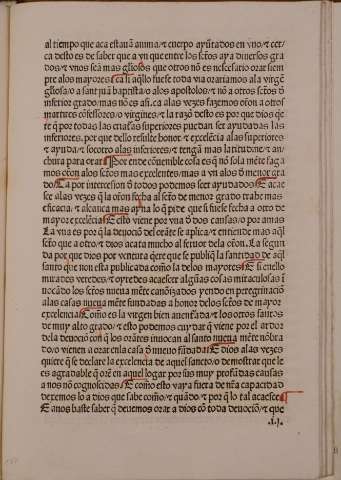 al tiempo que aca estauã anima/⁊ cuerpo ayũtados en vno/⁊ cer/
ca desto es de saber que a vn que entre los sctõs aya diuersos gra
dos/⁊ vnos seã mas gliosos que otros nõ es neçesario orar siem
pre alos mayores ca si aq̃llo fuese toda via orariamos ala virgẽ
gliosa/o a sant juã baptista/o alos apostolos/⁊ nõ a otros sctõs ð
inferior grado/mas nõ es asi. ca alas vezes fazemos orõn a otros
martires cõfessores/o virgines/⁊ la razõ desto es por que dios q̃e
re q̃ por todas las cruasas superiores puedan ser ayudadas las
inferiores. por que dello resulte honor/⁊ excelẽcia alas superiores
⁊ ayuda/⁊ socorro alas inferiores/⁊ tengã mas latitudine/⁊ an/
chura para orar Por ende cõuenible cosa es q̃ nõ sola mẽte faga
mos orõn alos sctõs mas excelentes/mas a vn alos ð menor gra
do/Ca por intercession ð todos podemos ser ayudados E acae
sce alas vezes q̃ la orõn fecha al sctõ de menor grado trahe mas
eficacia/⁊ alcança mas ayna lo q̃ pide que si fuese fecha a otro de
mayor excelẽcia E esto viene por vna ð dos causas/o por amas
La vna es por q̃ la deuociõ del orãte se aplica/⁊ entiende mas aq̃l
sctõ que a otro/⁊ dios acata mucho al feruor dela orõn. La segun
da por que dios por ventura q̃ere que se publiq̃ la santidad de aq̃l
santo que non esta publicada como la delos mayores E si en ello
mirades veredes/⁊ oyredes acaescer algũas cosas miraculosas ĩ
uocãdo los sctõs nueua mẽte canõizados yendo en peregrinaciõ
alas casas nueua mẽte fundadas a honor delos sctõs de mayor
excelencia Como es la virgen bien auenturada/⁊ los otros santos
de muy alto grado/⁊ esto podemos cuydar q̃ viene por el ardor
dela deuociõ con q̃ los orãtes inuocan al santo nueua mẽte nõbra
do/o vienen a orar enla casa ð nueuo fũdada E dios alas vezes
quiere que se declare la excelencia de aquel sancto/o demostrar que le
es agradable q̃ orẽ en aquel logar por sus muy profundas causas
a nos nõ cognoscidas E como esto vaya fuera de nr̃a capacidad
dexemos lo a dios que sabe como/⁊ quãdo/⁊ por q̃ lo tal acaesce
E anos baste saber q̃ deuemos orar a dios cõ toda deuociõ/⁊ que